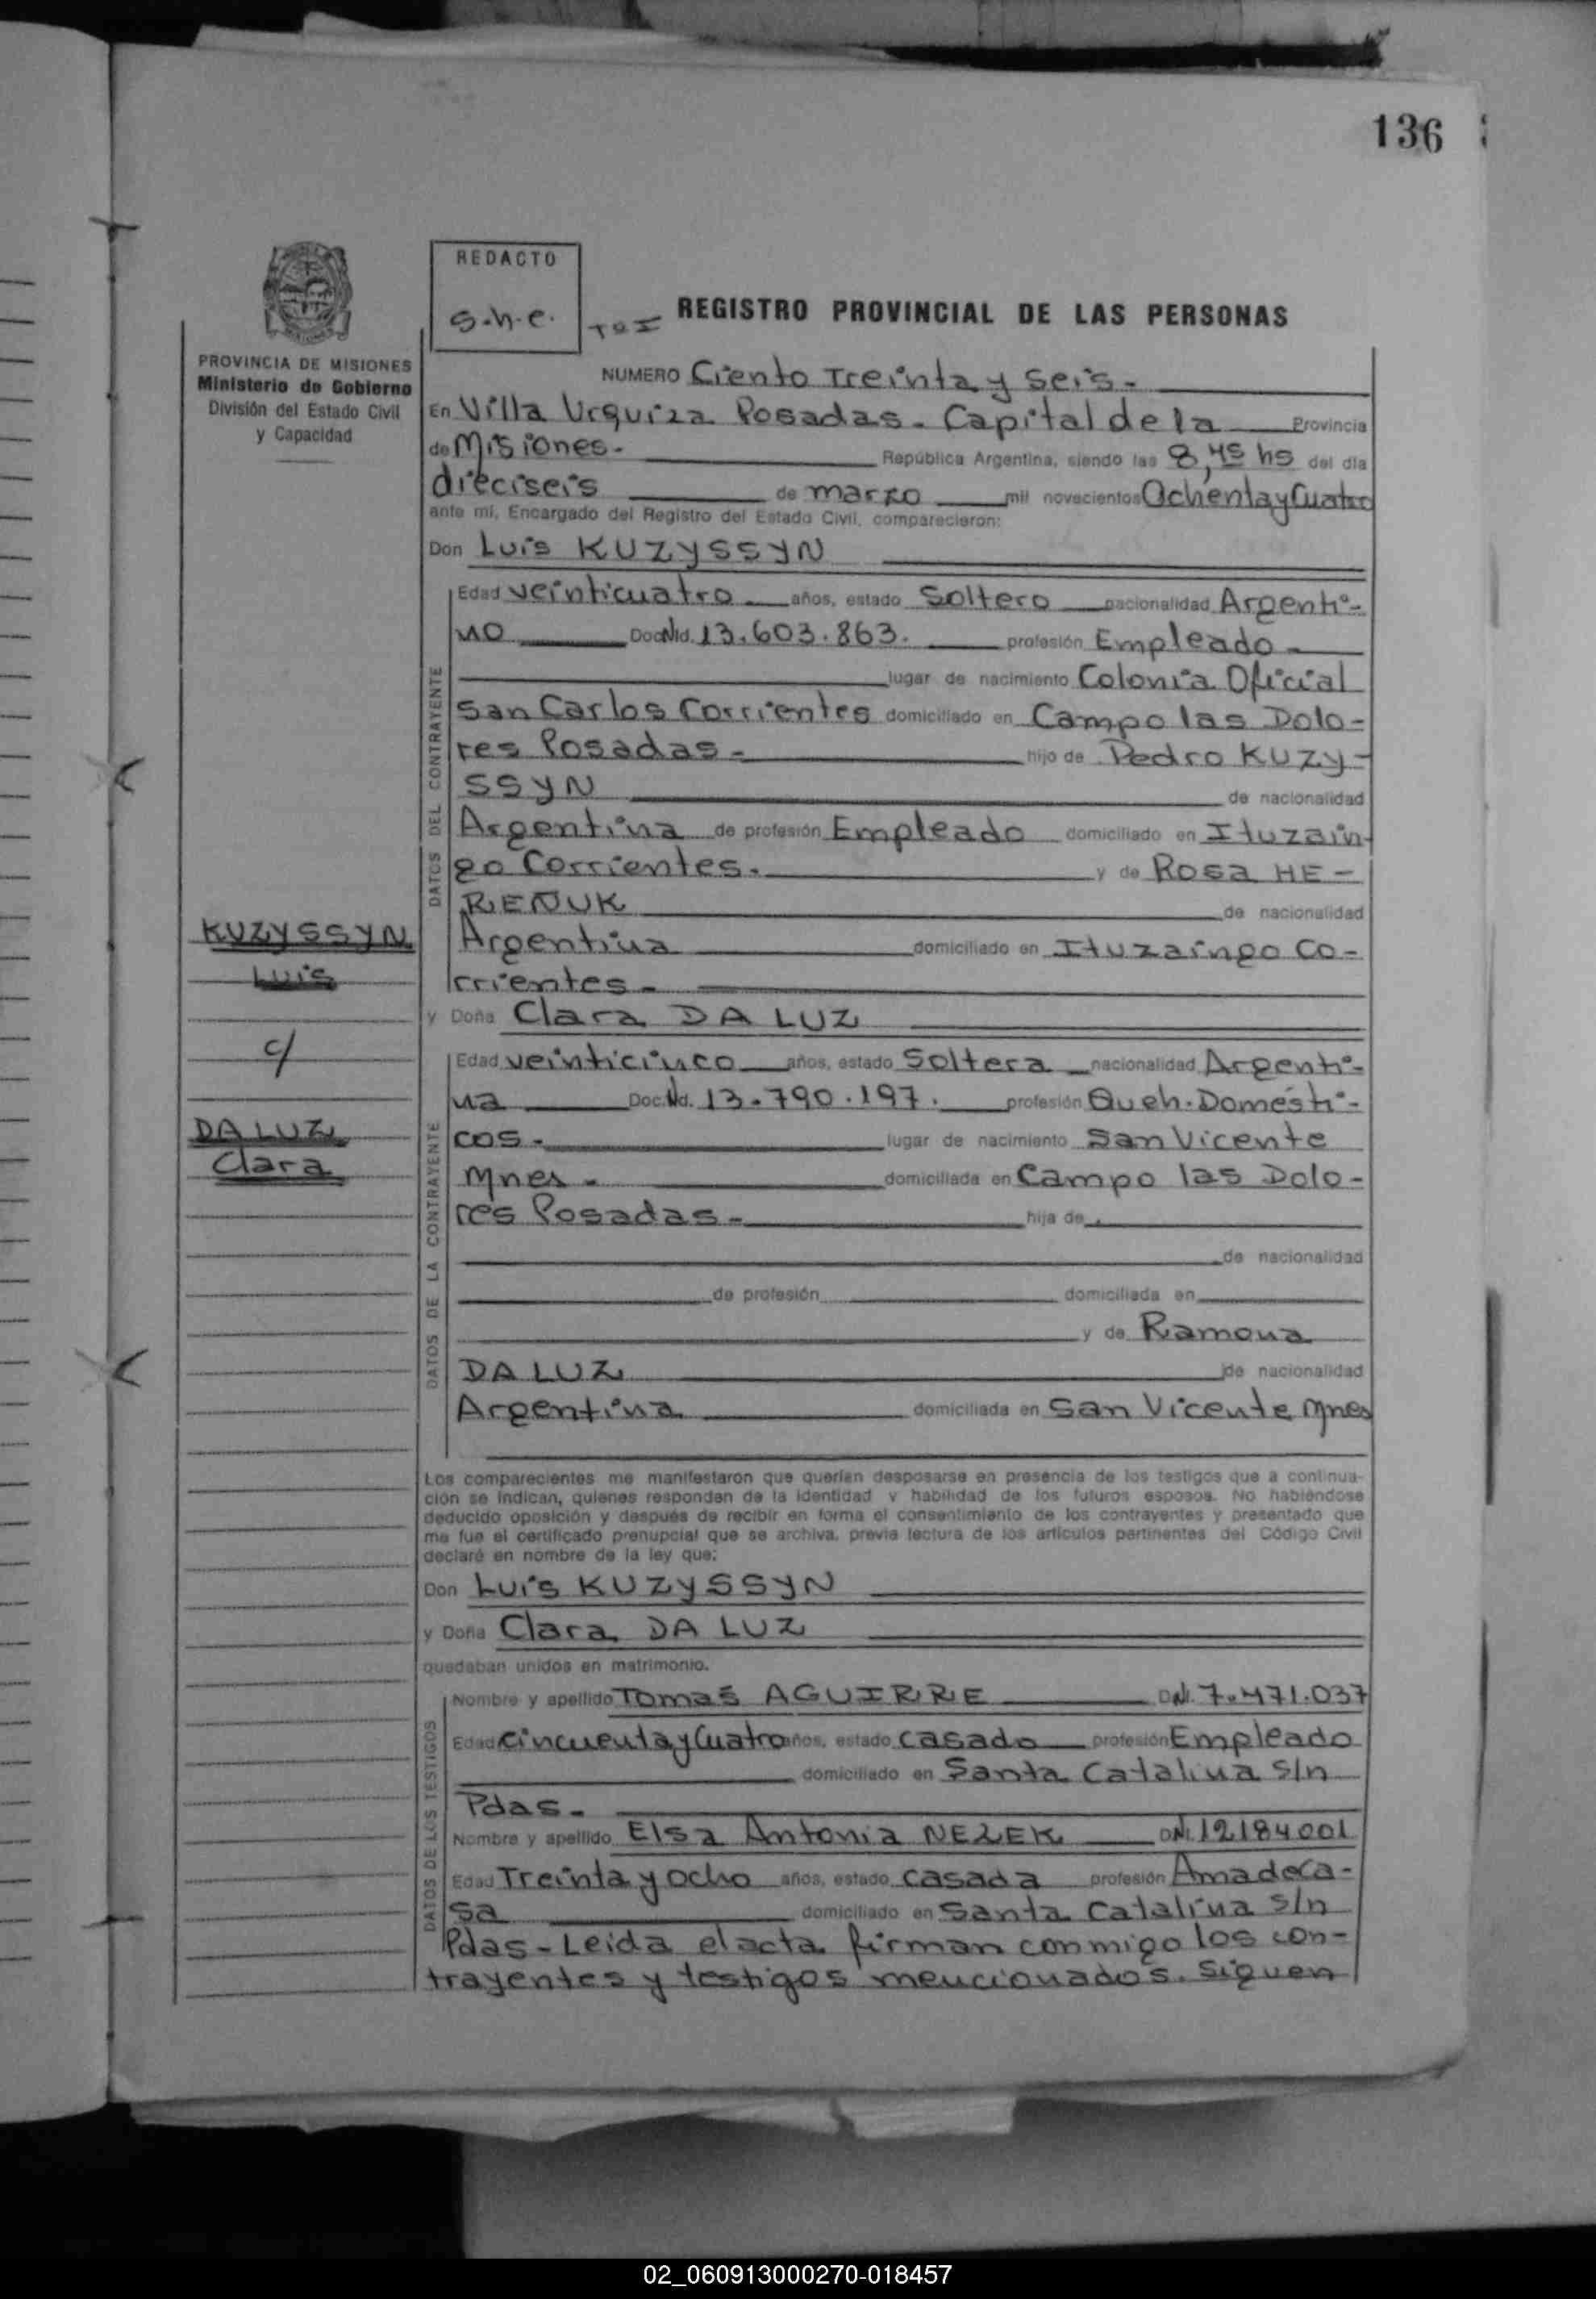 136
REDACTO
s.n.e.
Tº I
REGISTRO PROVINCIAL DE LAS PERSONAS
PROVINCIA DE MISIONES
Ministerio de Gobierno
División del Estado Civil
y Capacidad
NUMERO Ciento Treinta y Seis.-
En Villa Urquiza Posadas. Capital de la Provincia
de Misiones.- República Argentina, siendo las 8,45 hs del día
dieciseis de marzo mil novecientos Ochenta y Cuatro
ante mí, Encargado del Registro del Estado Civil, comparecieron:
Don Luis KUZYSSYN
DATOS DEL CONTRAYENTE
Edad veinticuatro años, estado Soltero nacionalidad Argenti-
no Doc.Nid. 13.603.863. profesión Empleado-
lugar de nacimiento Colonia Oficial
San Carlos Corrientes domiciliado en Campo las Dolo-
res Posadas- hijo de Pedro KUZY-
SSYN de nacionalidad
Argentina de profesión Empleado domiciliado en Ituzain-
go Corrientes. y de Rosa HE-
RENUK de nacionalidad
Argentina domiciliado en Ituzaingo Co-
rrientes-
KUZYSSYN
Luis
c/
DA LUZ
Clara
y Doña Clara DA LUZ
DATOS DE LA CONTRAYENTE
Edad veinticinco años, estado Soltera nacionalidad Argenti-
na Doc.Nd. 13.790.197. profesión Queh. Domésti-
cos- lugar de nacimiento San Vicente
Mnes- domiciliada en Campo las Dolo-
res Posadas- hija de
de nacionalidad
de profesión domiciliada en
y de Ramona
DA LUZ de nacionalidad
Argentina domiciliada en San Vicente Mnes
Los comparecientes me manifestaron que querían desposarse en presencia de los testigos que a continua-
ción se indican, quienes responden de la identidad y habilidad de los futuros esposos. No habiéndose
deducido oposición y después de recibir en forma el consentimiento de los contrayentes y presentado que
me fue el certificado prenupcial que se archiva, previa lectura de los artículos pertinentes del Código Civil
declaré en nombre de la ley que:
Don Luis KUZYSSYN
y Doña Clara DA LUZ
quedaban unidos en matrimonio.
DATOS DE LOS TESTIGOS
Nombre y apellido Tomas AGUIRRE DNI. 7.471.037
Edad Cincuenta y Cuatro años, estado casado profesión Empleado
domiciliado en Santa Catalina s/n
Pdas-
Nombre y apellido Elsa Antonia NEZEK DNI. 12184001
Edad Treinta y ocho años, estado casada profesión Ama de Ca-
sa domiciliado en Santa Catalina s/n
Pdas- Leida el acta firman conmigo los con-
trayentes y testigos mencionados. Siguen
02_060913000270-018457